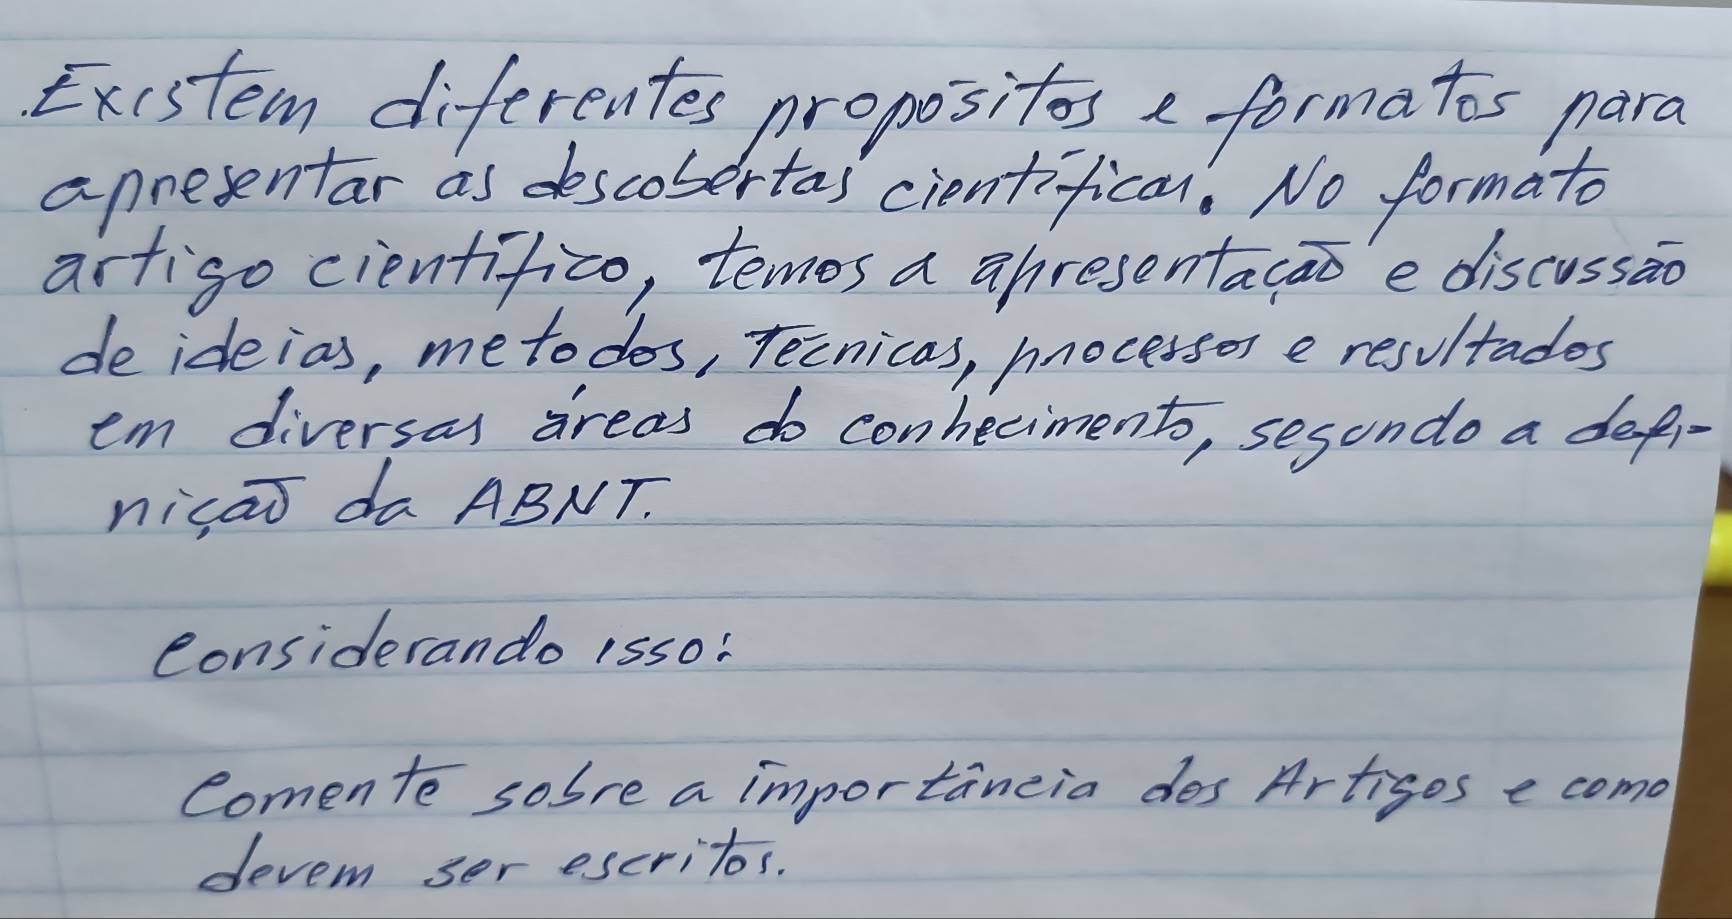 Existem diferentes propósitos e formatos para
apresentar as descobertas científicas. No formato
artigo científico, temos a apresentação e discussão
de ideias, metodos, Técnicas, processos e resultados
em diversas áreas do conhecimento, segundo a defi-
nição da ABNT.
Considerando isso:
Comente sobre a importância dos Artigos e como
devem ser escritos.